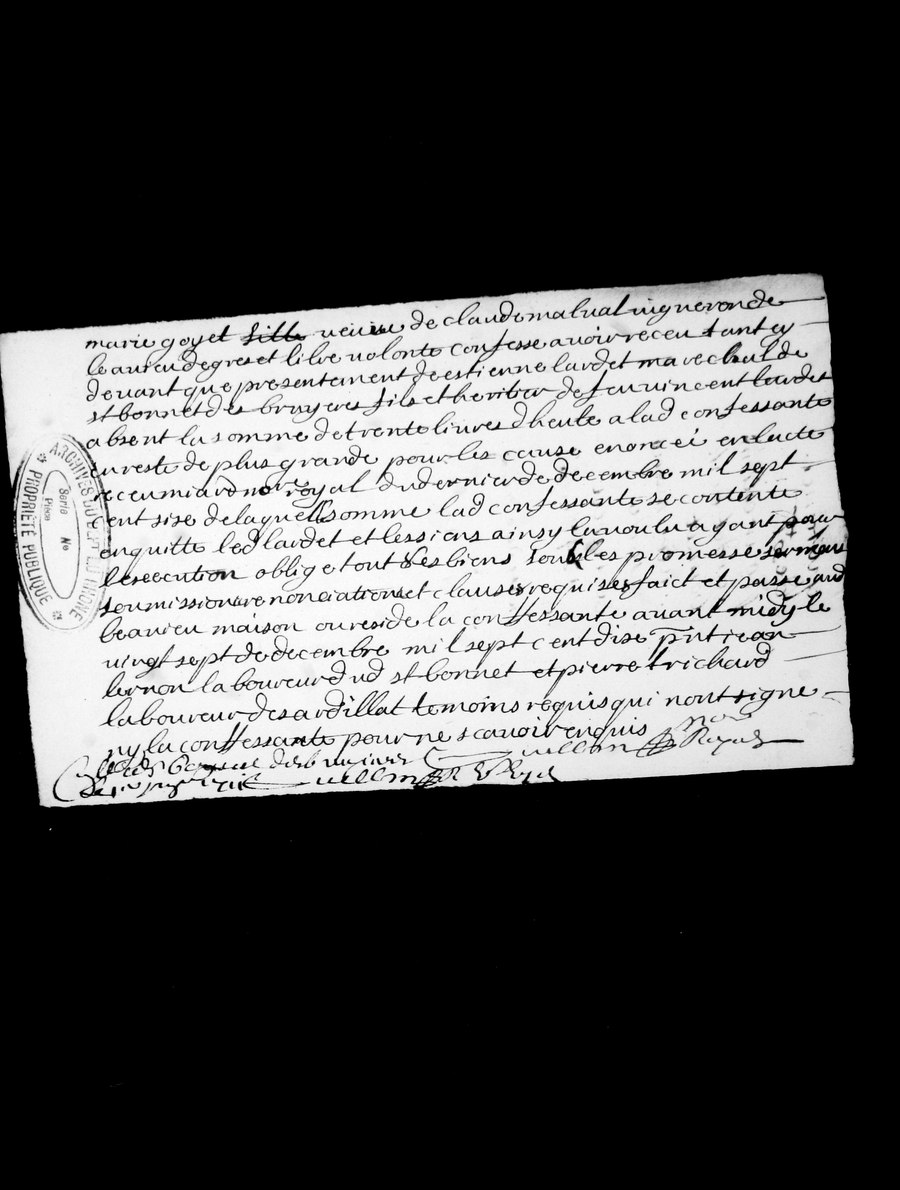 marie goyet fille veuve de claude malval vigneron de
beauieu de gres et libre volonte confesse auoir receu tant cy
deuant que presentement de estienne lardet marechal de
st bonnet des bruyeres fils et heritier de feu vincent lardet
absent la somme de trente liures dheue a lad confessante
en reste de plus grande pour les cause enoncei en lacte
receu miard nore royal du dernier de decembre mil sept
cent sise de laquelle somme lad confessante se contente
en quitte led lardet et les siens ainsy la voulu agant pour
lexecution oblige tout ses biens soubs les promesse serment
soumission renonciations et clauses requises faict et passe aud
beauieu maison ou reside la confessante auant midy le
vingt sept de decembre mil sept cent dise pnt jean
lernon laboureur dud st bonnet et pierre trichard
laboureur des ardillat temoins requis qui nont signe
ny la confessante pour ne scauoir enquis
nore Royal
ARCHIVES DU DEPT DU RHONE
PROPRIÉTÉ PUBLIQUE
Serie No
Pièce